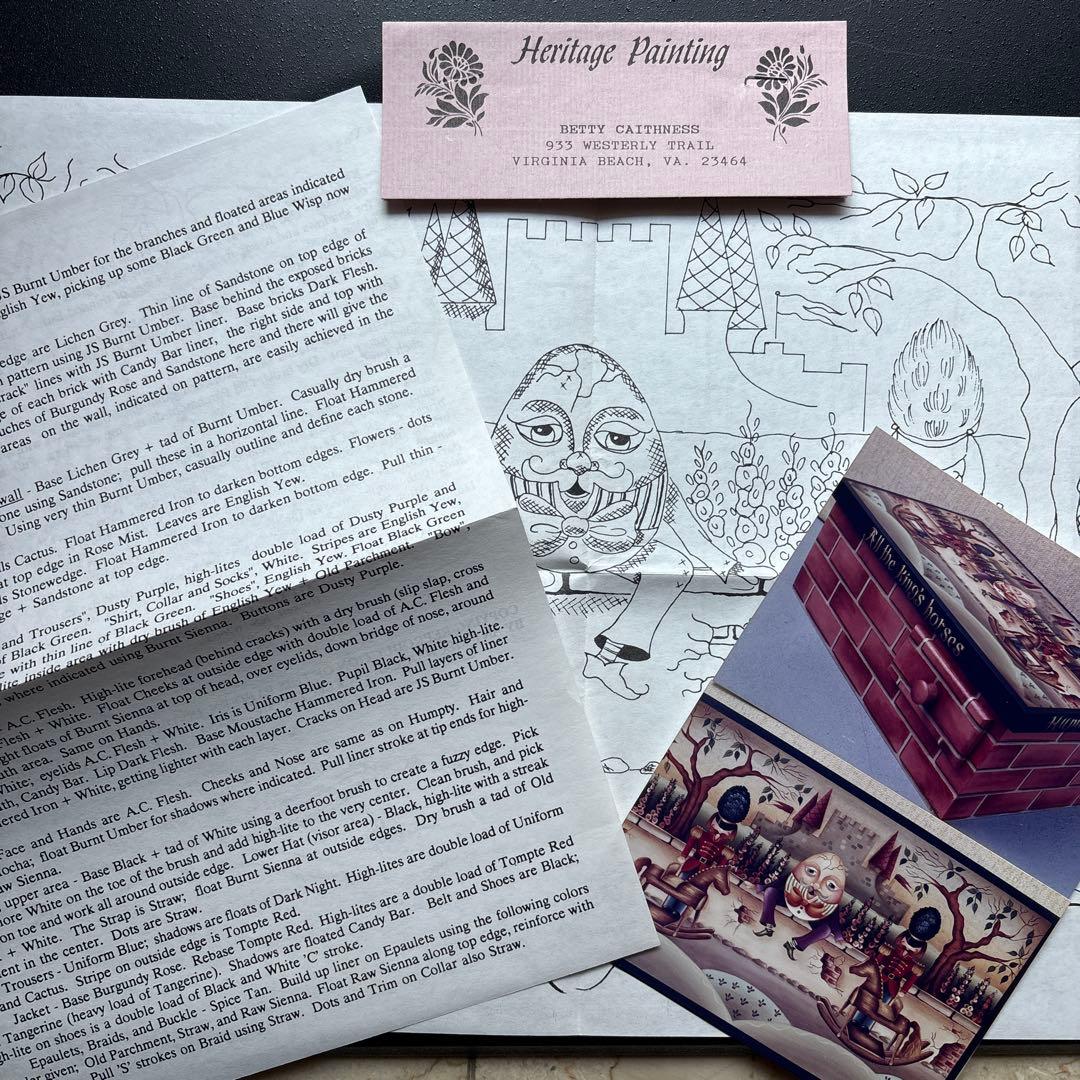 Heritage Painting
BETTY CAITHNESS
933 WESTERLY TRAIL
VIRGINIA BEACH, VA. 23464
JS Burnt Umber for the branches and floated areas indicated
glish Yew, picking up some Black Green and Blue Wisp now
edge are Lichen Grey. Thin line of Sandstone on top edge of
pattern using JS Burnt Umber. Base behind the exposed bricks
rack" lines with JS Burnt Umber liner. Base bricks Dark Flesh.
e of each brick with Candy Bar liner, the right side and top with
uches of Burgundy Rose and Sandstone here and there will give the
areas on the wall, indicated on pattern, are easily achieved in the
wall - Base Lichen Grey + tad of Burnt Umber. Casually dry brush a
one using Sandstone; pull these in a horizontal line. Float Hammered
Using very thin Burnt Umber, casually outline and define each stone.
lls Cactus. Float Hammered Iron to darken bottom edges. Flowers - dots
at top edge in Rose Mist. Leaves are English Yew.
ls Stonewedge. Float Hammered Iron to darken bottom edge. Pull thin -
ge + Sandstone at top edge.
and Trousers", Dusty Purple, high-lites double load of Dusty Purple and
of Black Green. "Shirt, Collar and Socks", White. Stripes are English Yew,
with thin line of Black Green. "Shoes", English Yew. Float Black Green
lite inside area with dry brush of English Yew + Old Parchment. "Bow",
where indicated using Burnt Sienna. Buttons are Dusty Purple.
A.C. Flesh. High-lite forehead (behind cracks) with a dry brush (slip slap, cross
Flesh + White. Float Cheeks at outside edge with double load of A.C. Flesh and
ght floats of Burnt Sienna at top of head, over eyelids, down bridge of nose, around
th area. Same on Hands.
White; eyelids A.C. Flesh + White. Iris is Uniform Blue. Pupil Black, White high-lite.
th, Candy Bar. Lip Dark Flesh. Base Moustache Hammered Iron. Pull layers of liner
ered Iron + White, getting lighter with each layer. Cracks on Head are JS Burnt Umber.
Face and Hands are A.C. Flesh. Cheeks and Nose are same as on Humpty. Hair and
ocha; float Burnt Umber for shadows where indicated. Pull liner stroke at tip ends for high-
aw Sienna.
upper area - Base Black + tad of White using a deerfoot brush to create a fuzzy edge. Pick
ore White on the toe of the brush and add high-lite to the very center. Clean brush, and pick
on toe and work all around outside edge. Lower Hat (visor area) - Black, high-lite with a streak
+ White. The Strap is Straw; float Burnt Sienna at outside edges. Dry brush a tad of Old
ent in the center. Dots are Straw.
Trousers - Uniform Blue; shadows are floats of Dark Night. High-lites are double load of Uniform
and Cactus. Stripe on outside edge is Tompte Red.
Jacket - Base Burgundy Rose. Rebase Tompte Red. High-lites are a double load of Tompte Red
Tangerine (heavy load of Tangerine). Shadows are floated Candy Bar. Belt and Shoes are Black;
gh-lite on shoes is a double load of Black and White 'C' stroke.
Epaulets, Braids, and Buckle - Spice Tan. Build up liner on Epaulets using the following colors
lar given; Old Parchment, Straw, and Raw Sienna. Float Raw Sienna along top edge, reinforce with
Pull 'S' strokes on Braid using Straw. Dots and Trim on Collar also Straw.
All the King's horses